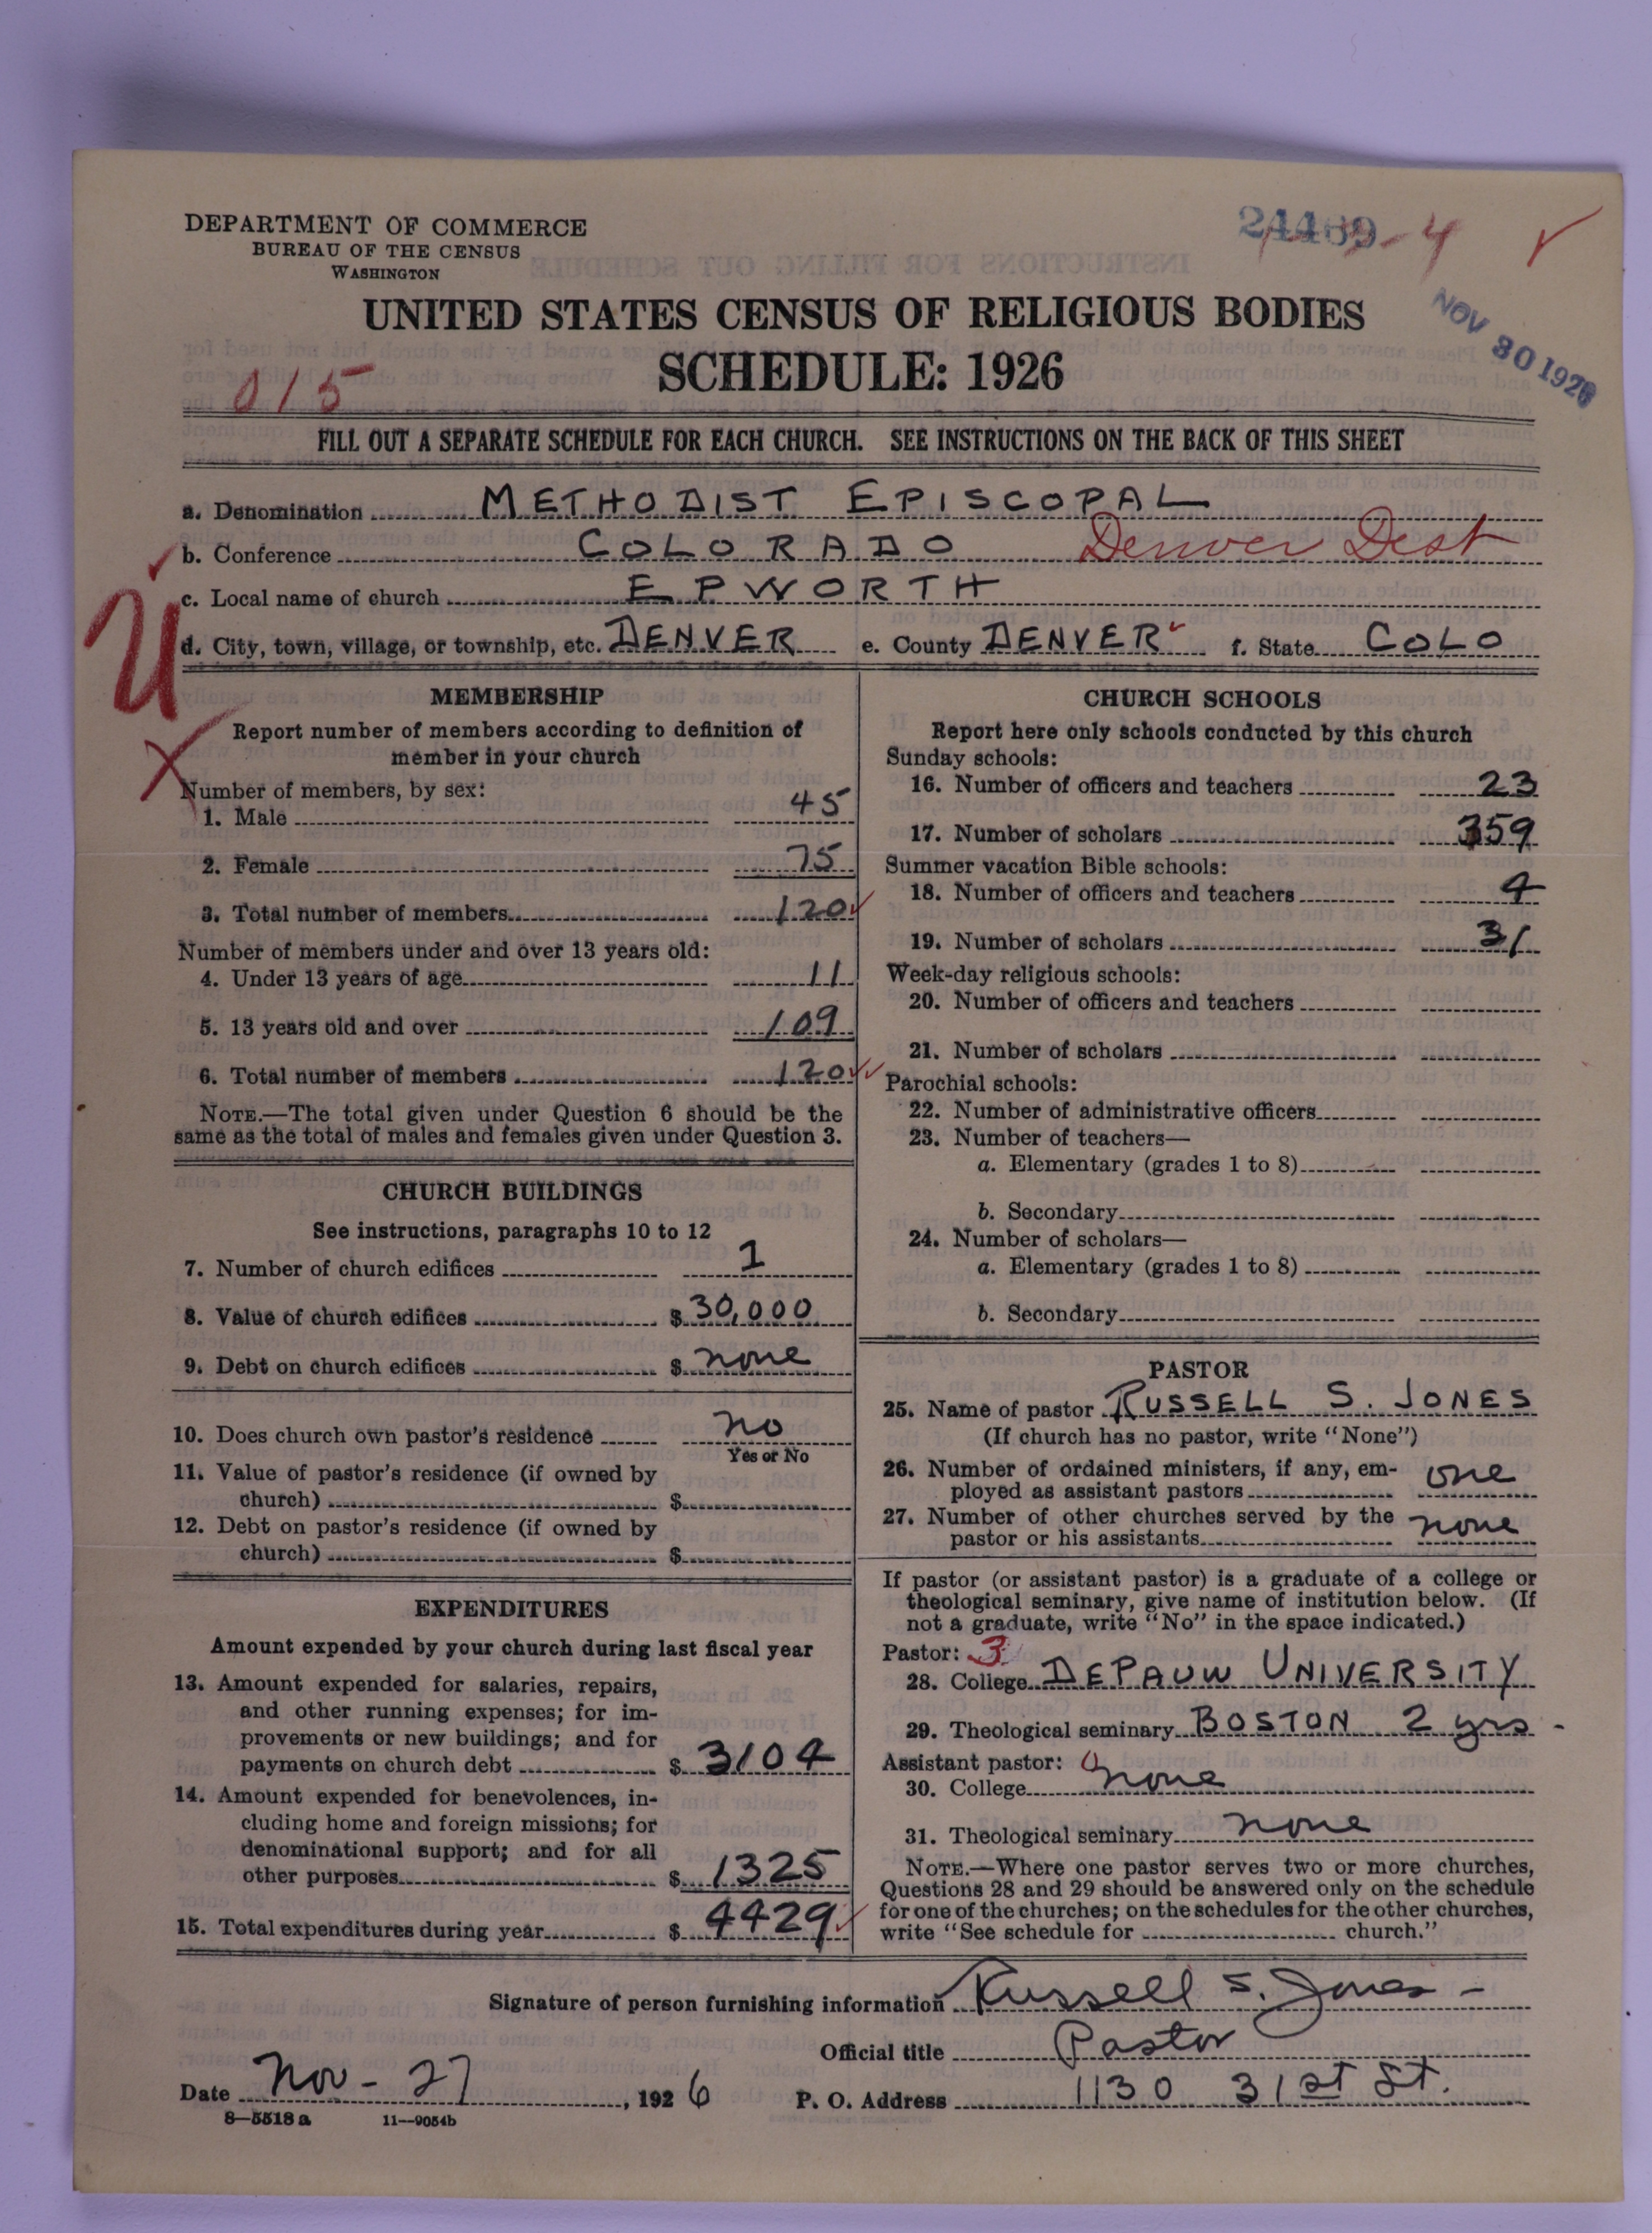 DEPARTMENT OF COMMERCE
BUREAU OF THE CENSUS
WASHINGTON
24469
4
NOV 30 1926
UNITED STATES CENSUS OF RELIGIOUS BODIES
SCHEDULE: 1926
015
FILL OUT A SEPARATE SCHEDULE FOR EACH CHURCH. SEE INSTRUCTIONS ON THE BACK OF THIS SHEET
a. Denomination METHODIST EPISCOPAL
b. Conference COLORADO Denver Dist
c. Local name of church EPWORTH
d. City, town, village, or township, etc. DENVER e. County DENVER f. State COLO
U
MEMBERSHIP
Report number of members according to definition of
member in your church
Number of members, by sex:
1. Male 45
2. Female 75
3. Total number of members 120
Number of members under and over 13 years old:
4. Under 13 years of age 11
5. 13 years old and over 109
6. Total number of members 120
NOTE.—The total given under Question 6 should be the
same as the total of males and females given under Question 3.
CHURCH BUILDINGS
See instructions, paragraphs 10 to 12
7. Number of church edifices 1
8. Value of church edifices $ 30,000
9. Debt on church edifices $ none
10. Does church own pastor's residence no
Yes or No
11. Value of pastor's residence (if owned by
church) $
12. Debt on pastor's residence (if owned by
church) $
EXPENDITURES
Amount expended by your church during last fiscal year
13. Amount expended for salaries, repairs,
and other running expenses; for im-
provements or new buildings; and for
payments on church debt $ 3104
14. Amount expended for benevolences, in-
cluding home and foreign missions; for
denominational support; and for all
other purposes $ 1325
15. Total expenditures during year $ 4429
CHURCH SCHOOLS
Report here only schools conducted by this church
Sunday schools:
16. Number of officers and teachers 23
17. Number of scholars 359
Summer vacation Bible schools:
18. Number of officers and teachers 4
19. Number of scholars 31
Week-day religious schools:
20. Number of officers and teachers
21. Number of scholars
Parochial schools:
22. Number of administrative officers
23. Number of teachers—
a. Elementary (grades 1 to 8)
b. Secondary
24. Number of scholars—
a. Elementary (grades 1 to 8)
b. Secondary
PASTOR
25. Name of pastor RUSSELL S. JONES
(If church has no pastor, write "None")
26. Number of ordained ministers, if any, em-
ployed as assistant pastors one
27. Number of other churches served by the
pastor or his assistants none
If pastor (or assistant pastor) is a graduate of a college or
theological seminary, give name of institution below. (If
not a graduate, write "No" in the space indicated.)
Pastor: 3
28. College DEPAUW UNIVERSITY
29. Theological seminary BOSTON 2 yrs -
Assistant pastor: 0
30. College none
31. Theological seminary none
NOTE.—Where one pastor serves two or more churches,
Questions 28 and 29 should be answered only on the schedule
for one of the churches; on the schedules for the other churches,
write "See schedule for church."
Signature of person furnishing information Russell S. Jones -
Official title Pastor
Date Nov - 27, 1926 P. O. Address 1130 31st St.
8—5518 a 11—9054b